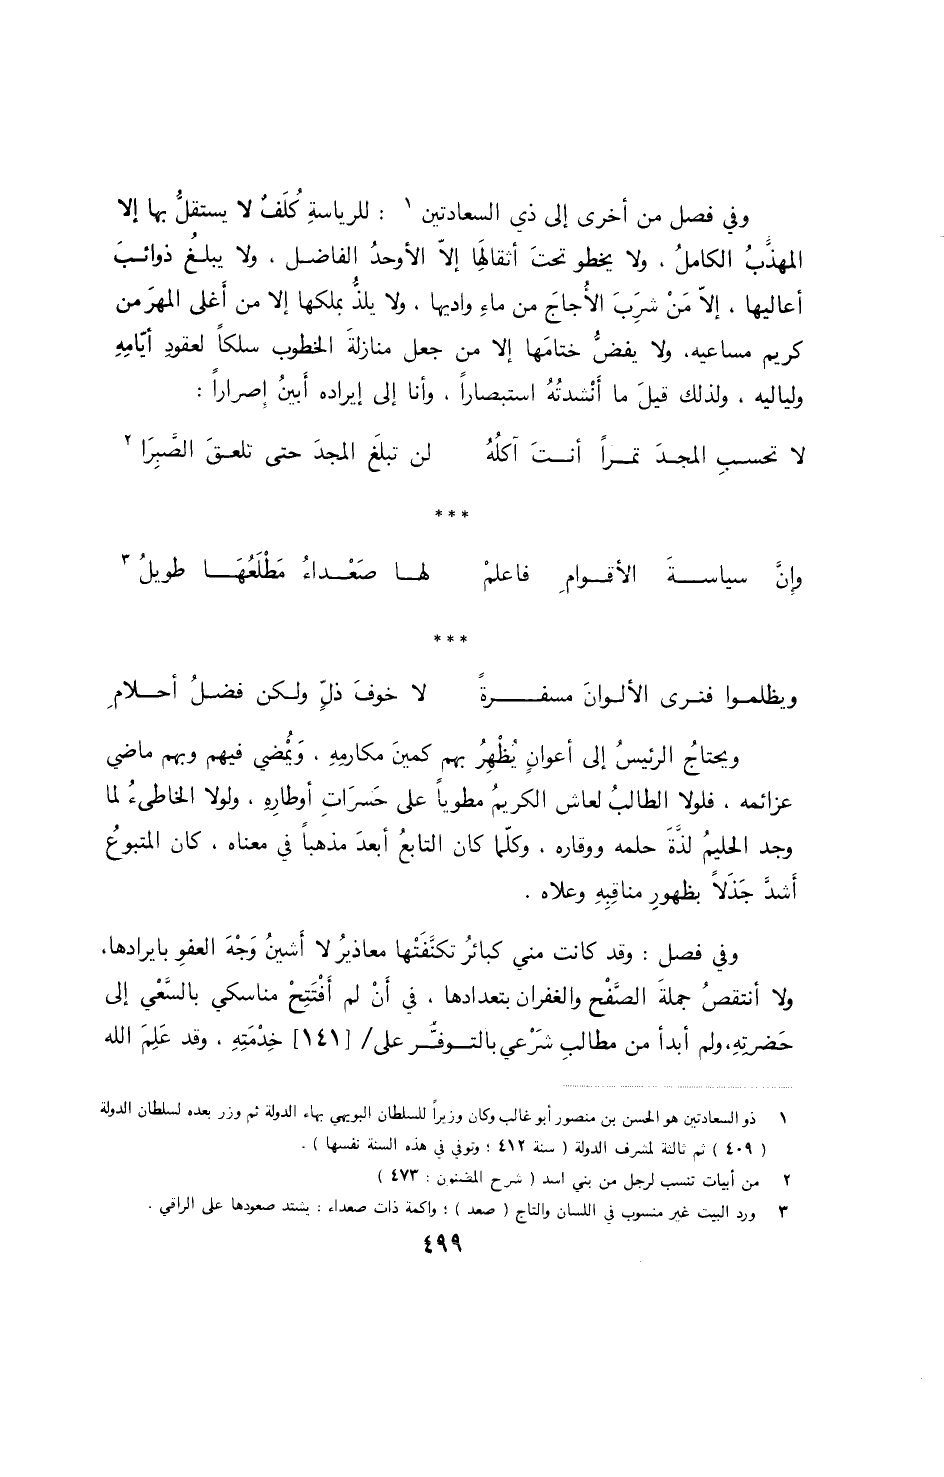 وفي فصل من أخرى إلى ذي السعادتين ١ : للرياسةِ كُلَفٌ لا يستقلُّ بها إلا
المهذَّبُ الكاملُ ، ولا يخطو تحتَ أثقالهَا إلاّ الأوحدُ الفاضل ، ولا يبلغُ ذوائبَ
أعاليها ، إلاّ مَنْ شَرَبَ الأُجاجَ من ماءِ واديها ، ولا يلذُّ بملكها إلا من أَغلى المهرَ من
كريم مساعيه، ولا يفضُّ ختامَها إلا من جعل منازلةَ الخطوب سلكاً لعقودِ أيّامِهِ
ولياليه ، ولذلك قيلَ ما أَنْشدتُهُ استبصاراً ، وأنا إلى إيراده أبينُ إصراراً :
لا تحسبِ المجدَ تمراً أنتَ آكلُهُ لن تبلغَ المجدَ حتى تلعقَ الصَّبِرَا ٢
***
وإنَّ سياسةَ الأقوامِ فاعلمْ لها صَعْداءُ مَطْلَعُهَا طويلُ ٣
***
ويظلموا فترى الألوانَ مسفرةً لا خوفَ ذلّ ولكن فضلُ أحلامِ
ويحتاجُ الرئيسُ إلى أعوانٍ يُظْهِرُ بهم كمينَ مكارمِهِ ، وَيُمْضي فيهم وبهم ماضي
عزائمه ، فلولا الطالبُ لعاش الكريمُ مطوياً على حَسَراتِ أوطارِهِ ، ولولا الخاطىءُ لما
وجد الحليمُ لذَّةَ حلمه ووقاره ، وكلّما كان التابعُ أبعدَ مذهباً في معناه ، كان المتبوعُ
أَشدَّ جَذَلاً بظهورِ مناقِبِهِ وعلاه .
وفي فصل : وقد كانت مني كبائرُ تكنَّفَتْها معاذيرُ لا أَشينُ وَجْهَ العفوِ بايرادها،
ولا أنتقصُ جملةَ الصَّفْح والغفران بتعدادها ، في أَنْ لم أَفْتَتِحْ مناسكي بالسَّعْي إلى
حَضرتِهِ،ولم أبدأ من مطالبِ شَرْعي بالتوفُّر على/ [١٤١] خِدْمَتِهِ ، وقد عَلِمَ الله
١ ذو السعادتين هو الحسن بن منصور أبو غالب وكان وزيراً للسلطان البويهي بهاء الدولة ثم وزر بعده لسلطان الدولة
( ٤٠٩ ) ثم ثالثة لمشرف الدولة ( سنة ٤١٢ ؛ وتوفي في هذه السنة نفسها ) .
٢ من أبيات تنسب لرجل من بني اسد ( شرح المضنون : ٤٧٣ )
٣ ورد البيت غير منسوب في اللسان والتاج ( صعد ) ؛ واكمة ذات صعداء : يشتد صعودها على الراقي .
٤٩٩